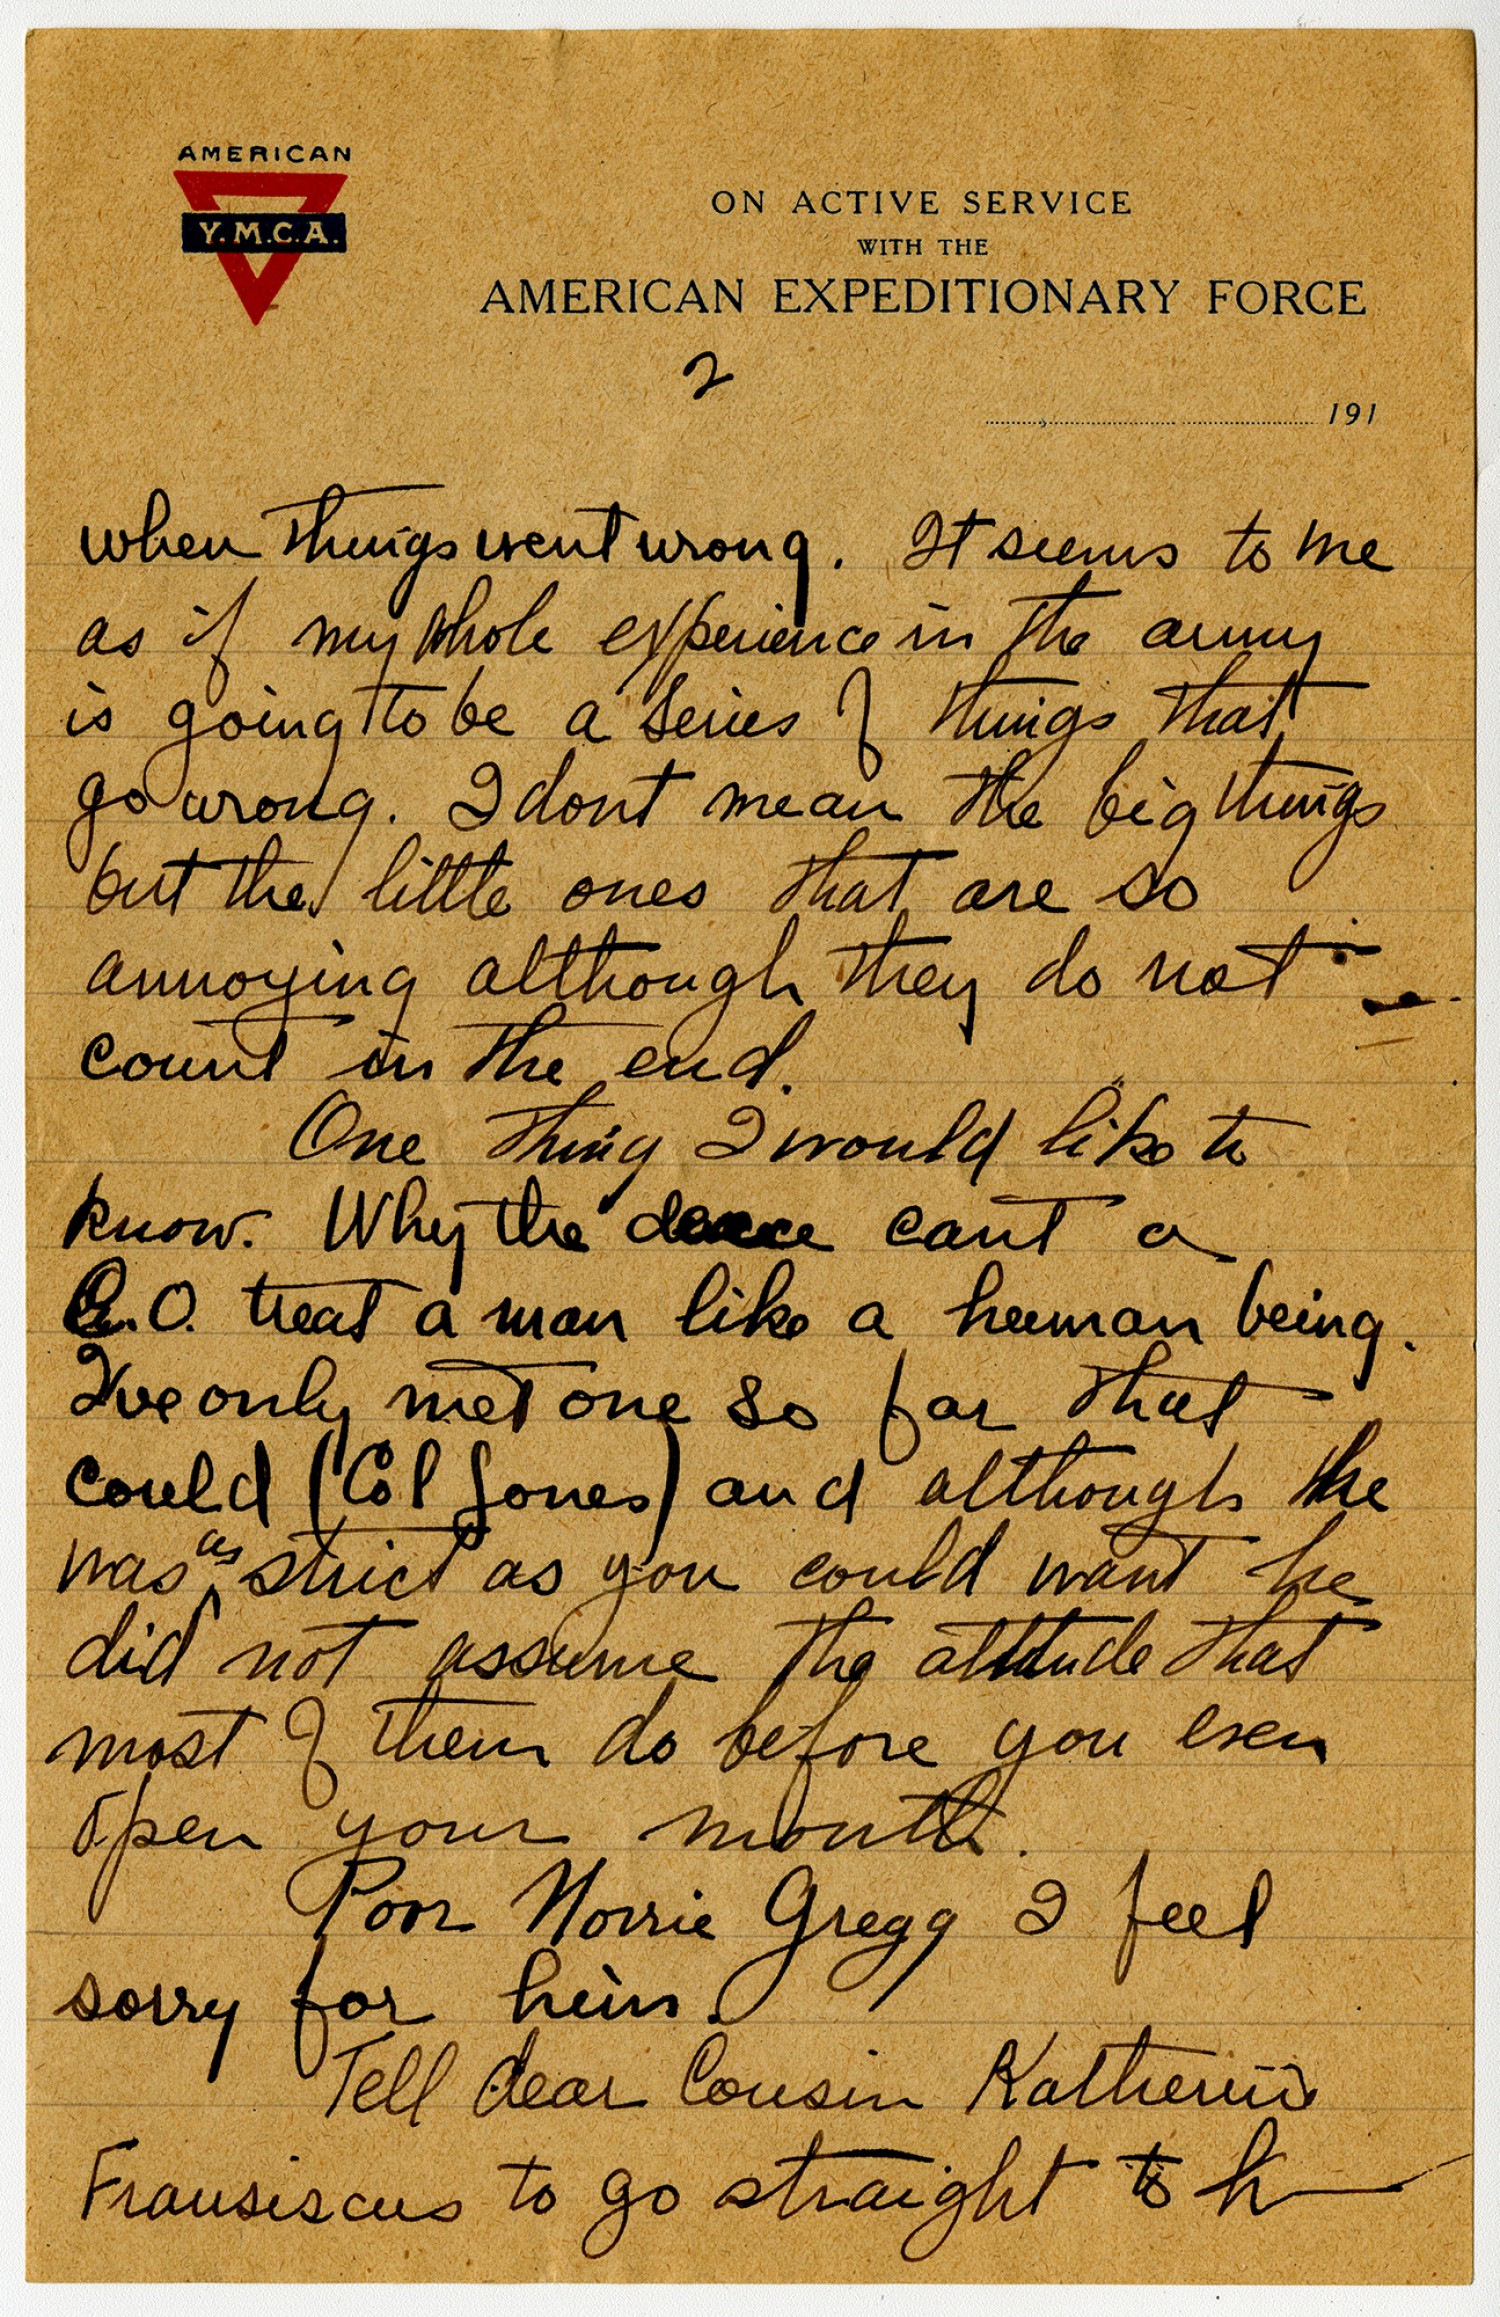 AMERICAN
Y.M.C.A.
ON ACTIVE SERVICE
WITH THE
AMERICAN EXPEDITIONARY FORCE
2
191
when things went wrong. It seems to me
as if my whole experience in the army
is going to be a series of things that
go wrong. I dont mean the big things
but the little ones that are so
annoying although they do not
count in the end.
One thing I would like to
know. Why the cant a
C.O. treat a man like a human being.
I've only met one so far that
could (Col Jones) and although he
was as strict as you could want he
did not assume the attitude that
most of them do before you even
open your mouth.
Poor Norrie Gregg I feel
sorry for him.
Tell dear Cousin Katherine
Fransiscus to go straight to h